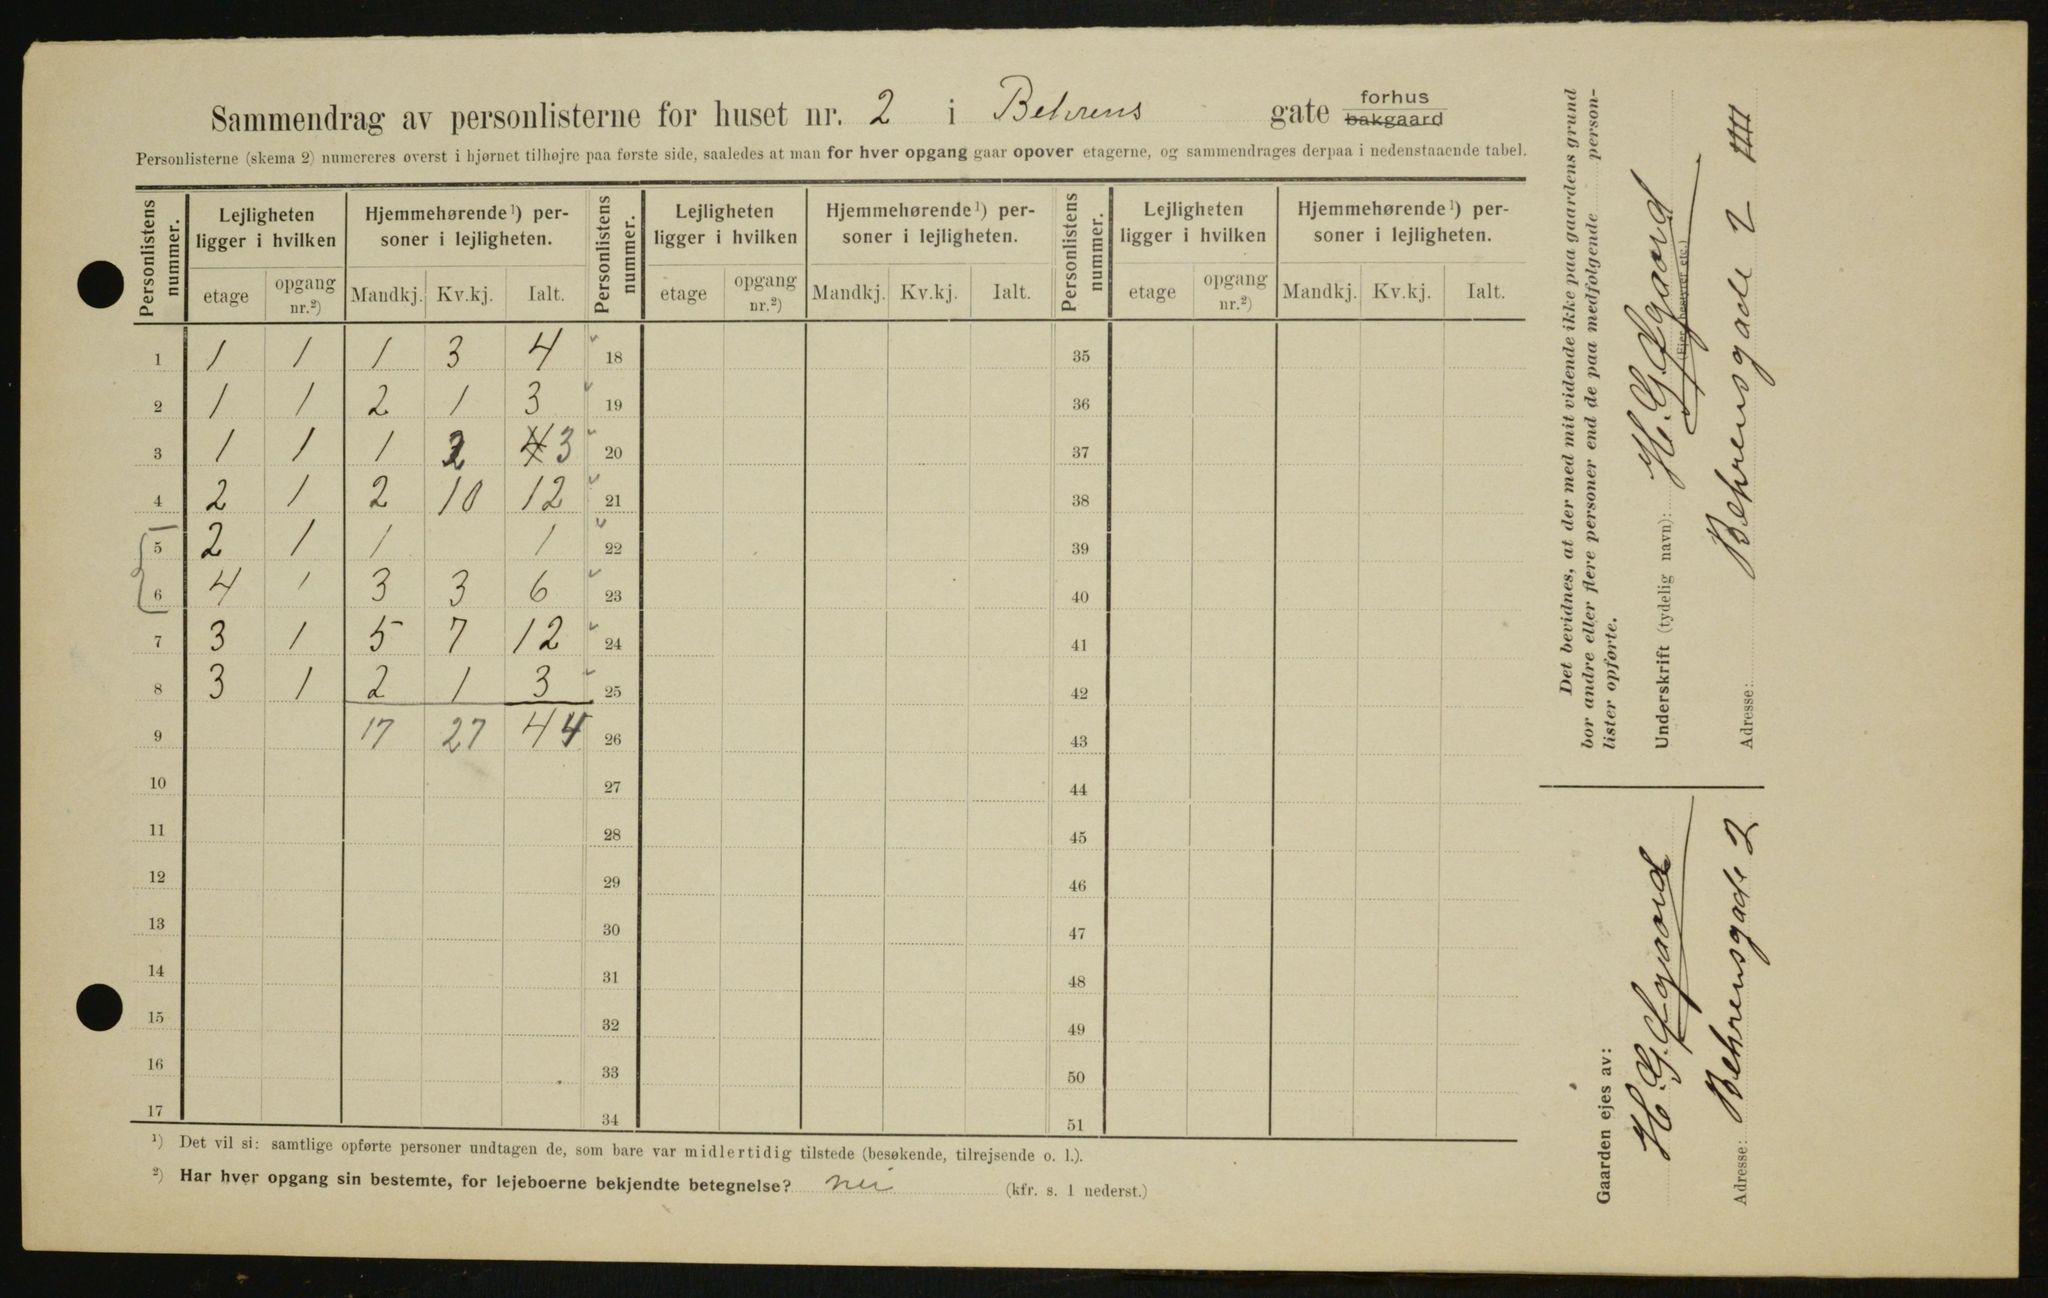 Sammendrag av personlisterne for huset nr. 2 i Behrens gate forhus bakgaard
Personlisterne (skema 2) numereres øverst i hjørnet tilhøjre paa første side, saaledes at man for hver opgang gaar opover etagerne, og sammendrages derpaa i nedenstaaende tabel.
Personlistens nummer. Lejligheten ligger i hvilken Hjemmehørende¹) personer i lejligheten. Personlistens nummer. Lejligheten ligger i hvilken Hjemmehørende¹) personer i lejligheten. Personlistens nummer. Lejligheten ligger i hvilken Hjemmehørende¹) personer i lejligheten.
etage opgang nr.²) Mandkj. Kv.kj. Ialt. etage opgang nr.²) Mandkj. Kv.kj. Ialt. etage opgang nr.²) Mandkj. Kv.kj. Ialt.
1 1 1 1 3 4 18 35
2 1 1 2 1 3 19 36
3 1 1 1 2 4 3 20 37
4 2 1 2 10 12 21 38
5 2 1 1 1 22 39
6 4 1 3 3 6 23 40
7 3 1 5 7 12 24 41
8 3 1 2 1 3 25 42
9 17 27 44 26 43
10 27 44
11 28 45
12 29 46
13 30 47
14 31 48
15 32 49
16 33 50
17 34 51
¹) Det vil si: samtlige opførte personer undtagen de, som bare var midlertidig tilstede (besøkende, tilrejsende o. l.).
²) Har hver opgang sin bestemte, for lejeboerne bekjendte betegnelse? nei (kfr. s. 1 nederst.)
Det bevidnes, at der med mit vidende ikke paa gaardens grund
bor andre eller flere personer end de paa medfølgende personlister opførte.
Underskrift (tydelig navn):
(Ejer, bestyrer etc.)
Adresse: Behrensgade 2
Gaarden ejes av:
Adresse: Behrensgade 2